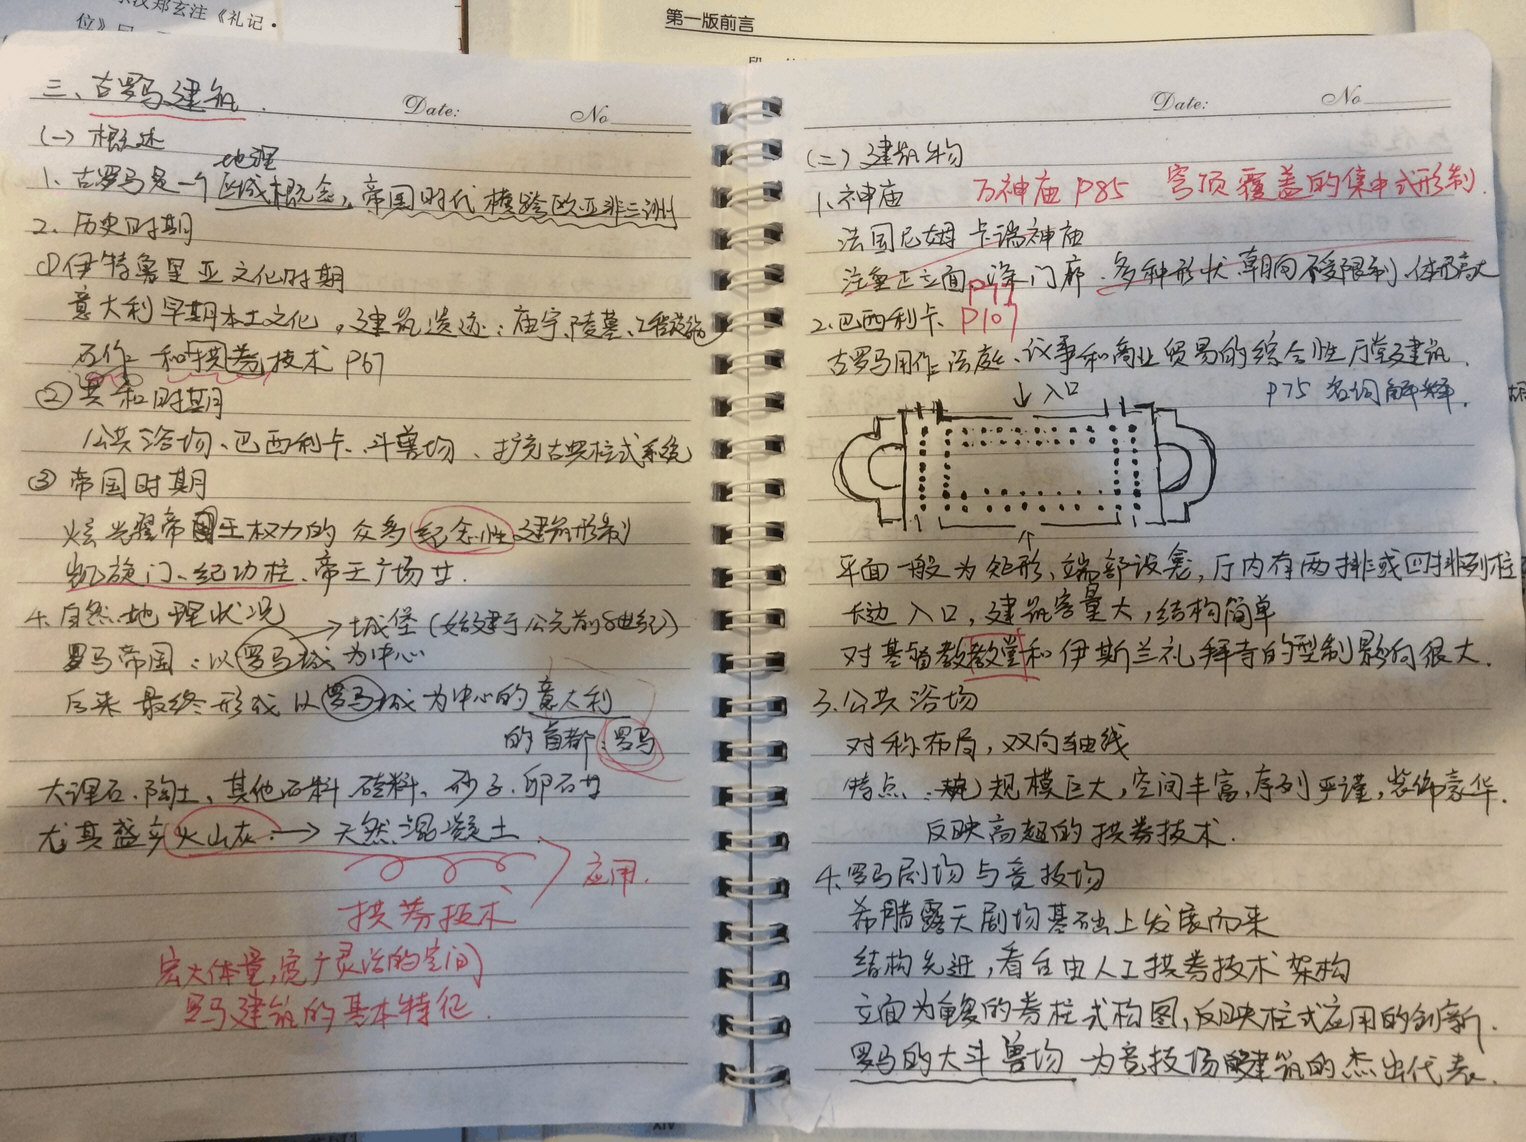 东汉郑玄注《礼记·
位》曰
第一版前言
三、古罗马建筑.
Date:
No
(一)概述
地理
1、古罗马是一个区域概念,帝国时代横跨欧亚非三洲
2、历史时期
①伊特鲁里亚文化时期
意大利早期本土文化,建筑遗迹:庙宇、陵墓、工程设施
石作 和拱券技术 P67
②共和时期
公共浴场、巴西利卡、斗兽场、扩充古典柱式系统
③帝国时期
炫耀帝国王权力的众多纪念性建筑形制
凯旋门、纪功柱、帝王广场廿.
4.自然地理状况
→城堡(始建于公元前8世纪)
罗马帝国:以罗马城为中心
后来最终形成以罗马城为中心的意大利
的首都:罗马
大理石、陶土、其他石料、硅料、砂子、卵石廿
尤其盛产火山灰:→天然混凝土
应用.
拱券技术
宏大体量,宽广灵活的空间
罗马建筑的基本特征.
Date:
No
(二)建筑物
1、神庙 万神庙 P85 穹顶覆盖的集中式形制.
法国尼姆 卡瑞神庙
注重正立面 门廊.多种形状 朝向不受限制,体形高大
P77
2.巴西利卡. P107
古罗马用作法庭、议事和商业贸易的综合性厅堂建筑.
P75 名词解释.
↓入口
平面一般为矩形、端部设龛,厅内有两排或四排列柱
长边入口,建筑容量大,结构简单
对基督教教堂和伊斯兰礼拜寺的型制影响很大.
3.公共浴场
对称布局,双向轴线
特点:规模巨大,空间丰富,序列严谨,装饰豪华.
反映高超的拱券技术.
4.罗马剧场与竞技场
希腊露天剧场基础上发展而来
结构先进,看台由人工拱券技术架构
立面为重复的券柱式构图,反映柱式应用的创新.
罗马的大斗兽场 为竞技场建筑的杰出代表.
XIV